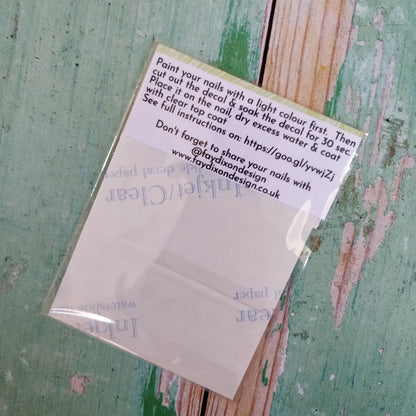 Paint your nails with a light colour first. Then
cut out the decal & soak the decal for 30 sec.
Place it on the nail, dry excess water & coat
with clear top coat
See full instructions on: https://goo.gl/yvwjZj
Don't forget to share your nails with
@faydixondesign
www.faydixondesign.co.uk
Inkjet/Clear
decal paper
Inkjet/Clear
waterslide decal paper